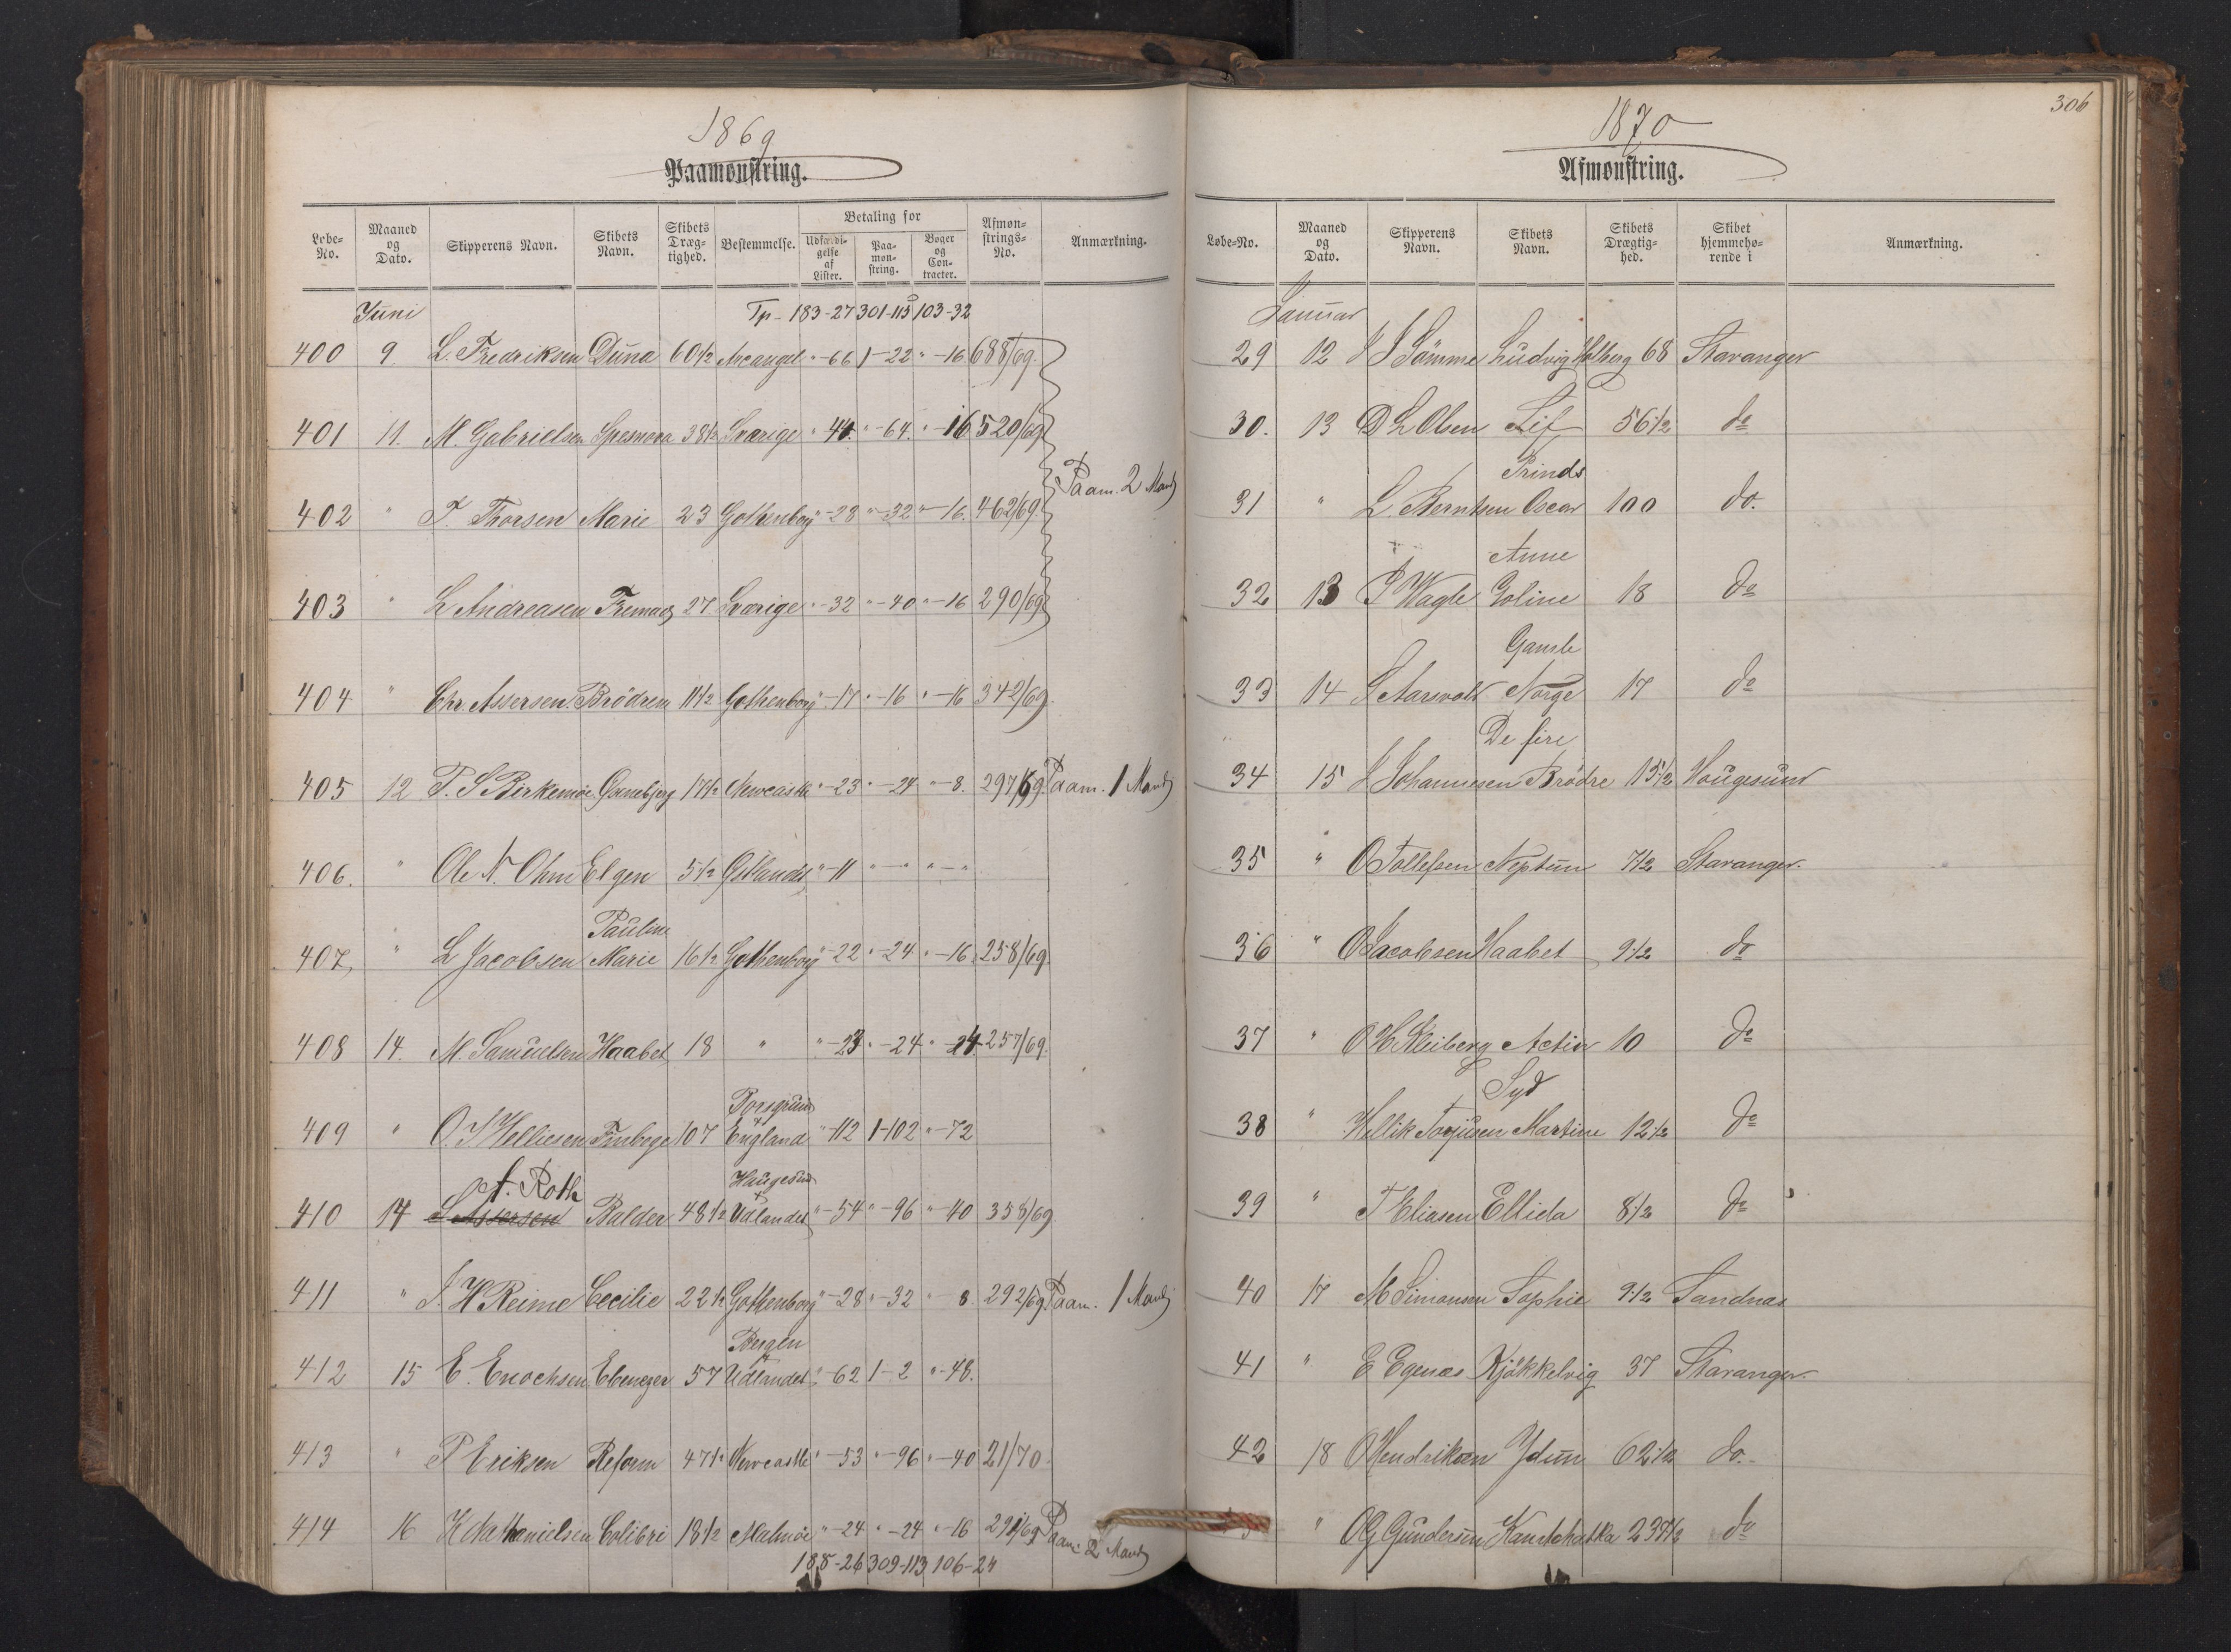 1869
Paamønstring.
Løbe-No. Maaned og Dato. Skipperens Navn. Skibets Navn. Skibets Dræg-tighed. Bestemmelse. Betaling for Udfærdi-gelse af Lister. Paa-møn-string. Bøger og Con-tracter. Afmøn-strings-No. Anmærkning.
Juni Tp - 183-27 301-115 103-32
400 9 L. Fredriksen Duna 60 1/2 Arcangel " -66 1-22 " -16 688/69.
401 11. M. Gabrielsen Spesnova 38 1/2 Sværige " 44. " -64. " -16 520/69
Paam. 2 Mand
402 " T. Thorsen Marie 23 Gothenborg " -28 " -32 " -16. 462/69
403 " L Andreasen Fremad 27 Sværige " -32 " -40 " -16 290/69
404 " Chr. Assersen Brödrene 11 1/2 Gothenborg " -17 " -16 " -16 342/69.
405 12 P. S Birkemoe 17 1/2 Newcastle " -23 " -24 " -8. 297/69. Paam. 1 Mand
406. " Ole N. Ohm Elgen 5 1/2 Östlandet " -11 " - " " - "
Pauline
407, " L Jacobsen Marie 16 1/2 Gothenborg " -22 " -24 " -16 258/69
408 14. M. Samuelsen Haabet 18 " " -23 " -24 " -24 257/69.
Porsgrund
409 " O. S Helliesen 107 England " -112 1-102 " -72
A. Roth Haugesund
410 14 L Assersen Balder 48 1/2 Udlandet " -54 " -96 " -40 358/69
411 " J. H Reime Cecilie 22 1/2 Gothenborg " -28 " -32 " 8. 292/69. Paam. 1 Mand
Bergen
412 15 E. Enochsen Ebenezer 57 Udlandet " -62 1-2 " -48.
413 " P Eriksen Reform 47 1/2 Newcastle " -53 " -96 " -40 21/70
414 16 K Nathanielsen Colibri 18 1/2 Malmöe " -24 " -24 " -16 291/69 Paam: 2 Mand
188-26 309-113 106-24
306
1870
Afmønstring.
Løbe-No. Maaned og Dato. Skipperens Navn. Skibets Navn. Skibets Drægtig-hed. Skibet hjemmehø-rende i Anmærkning.
Januar
29 12 J J Sömme Ludvig Holberg 68 Stavanger
30. 13 D L Olsen Lif 56 1/2 do
Prinds
31 " L. Berntsen Oscar 100 do.
Anne
32 13 P Wagle Goline 18 do
Gamle
33 14 S Aarsvold Norge 17 do
De fire
34 15 J Johannesen Brödre 15 1/2 Hougesund
35 " O Tollefsen Neptun 7 1/2 Stavanger.
36 " O Jacobsen Haabet 9 1/2 do
37 " O H Kleiberg Activ 10 do
Syd
38 " Hellik Torjusen Martine 12 1/2 do
39 " T Eliasen Ellida 8 1/2 do
40 17 M Simonsen Sophie 9 1/2 Sandnæs
41 " E Egenæs Kjökkelvig 37 Stavanger.
42 18 O Hendriksen Ydun 62 1/2 do.
" O G Gundersen Kamtchatka 237 1/2 do